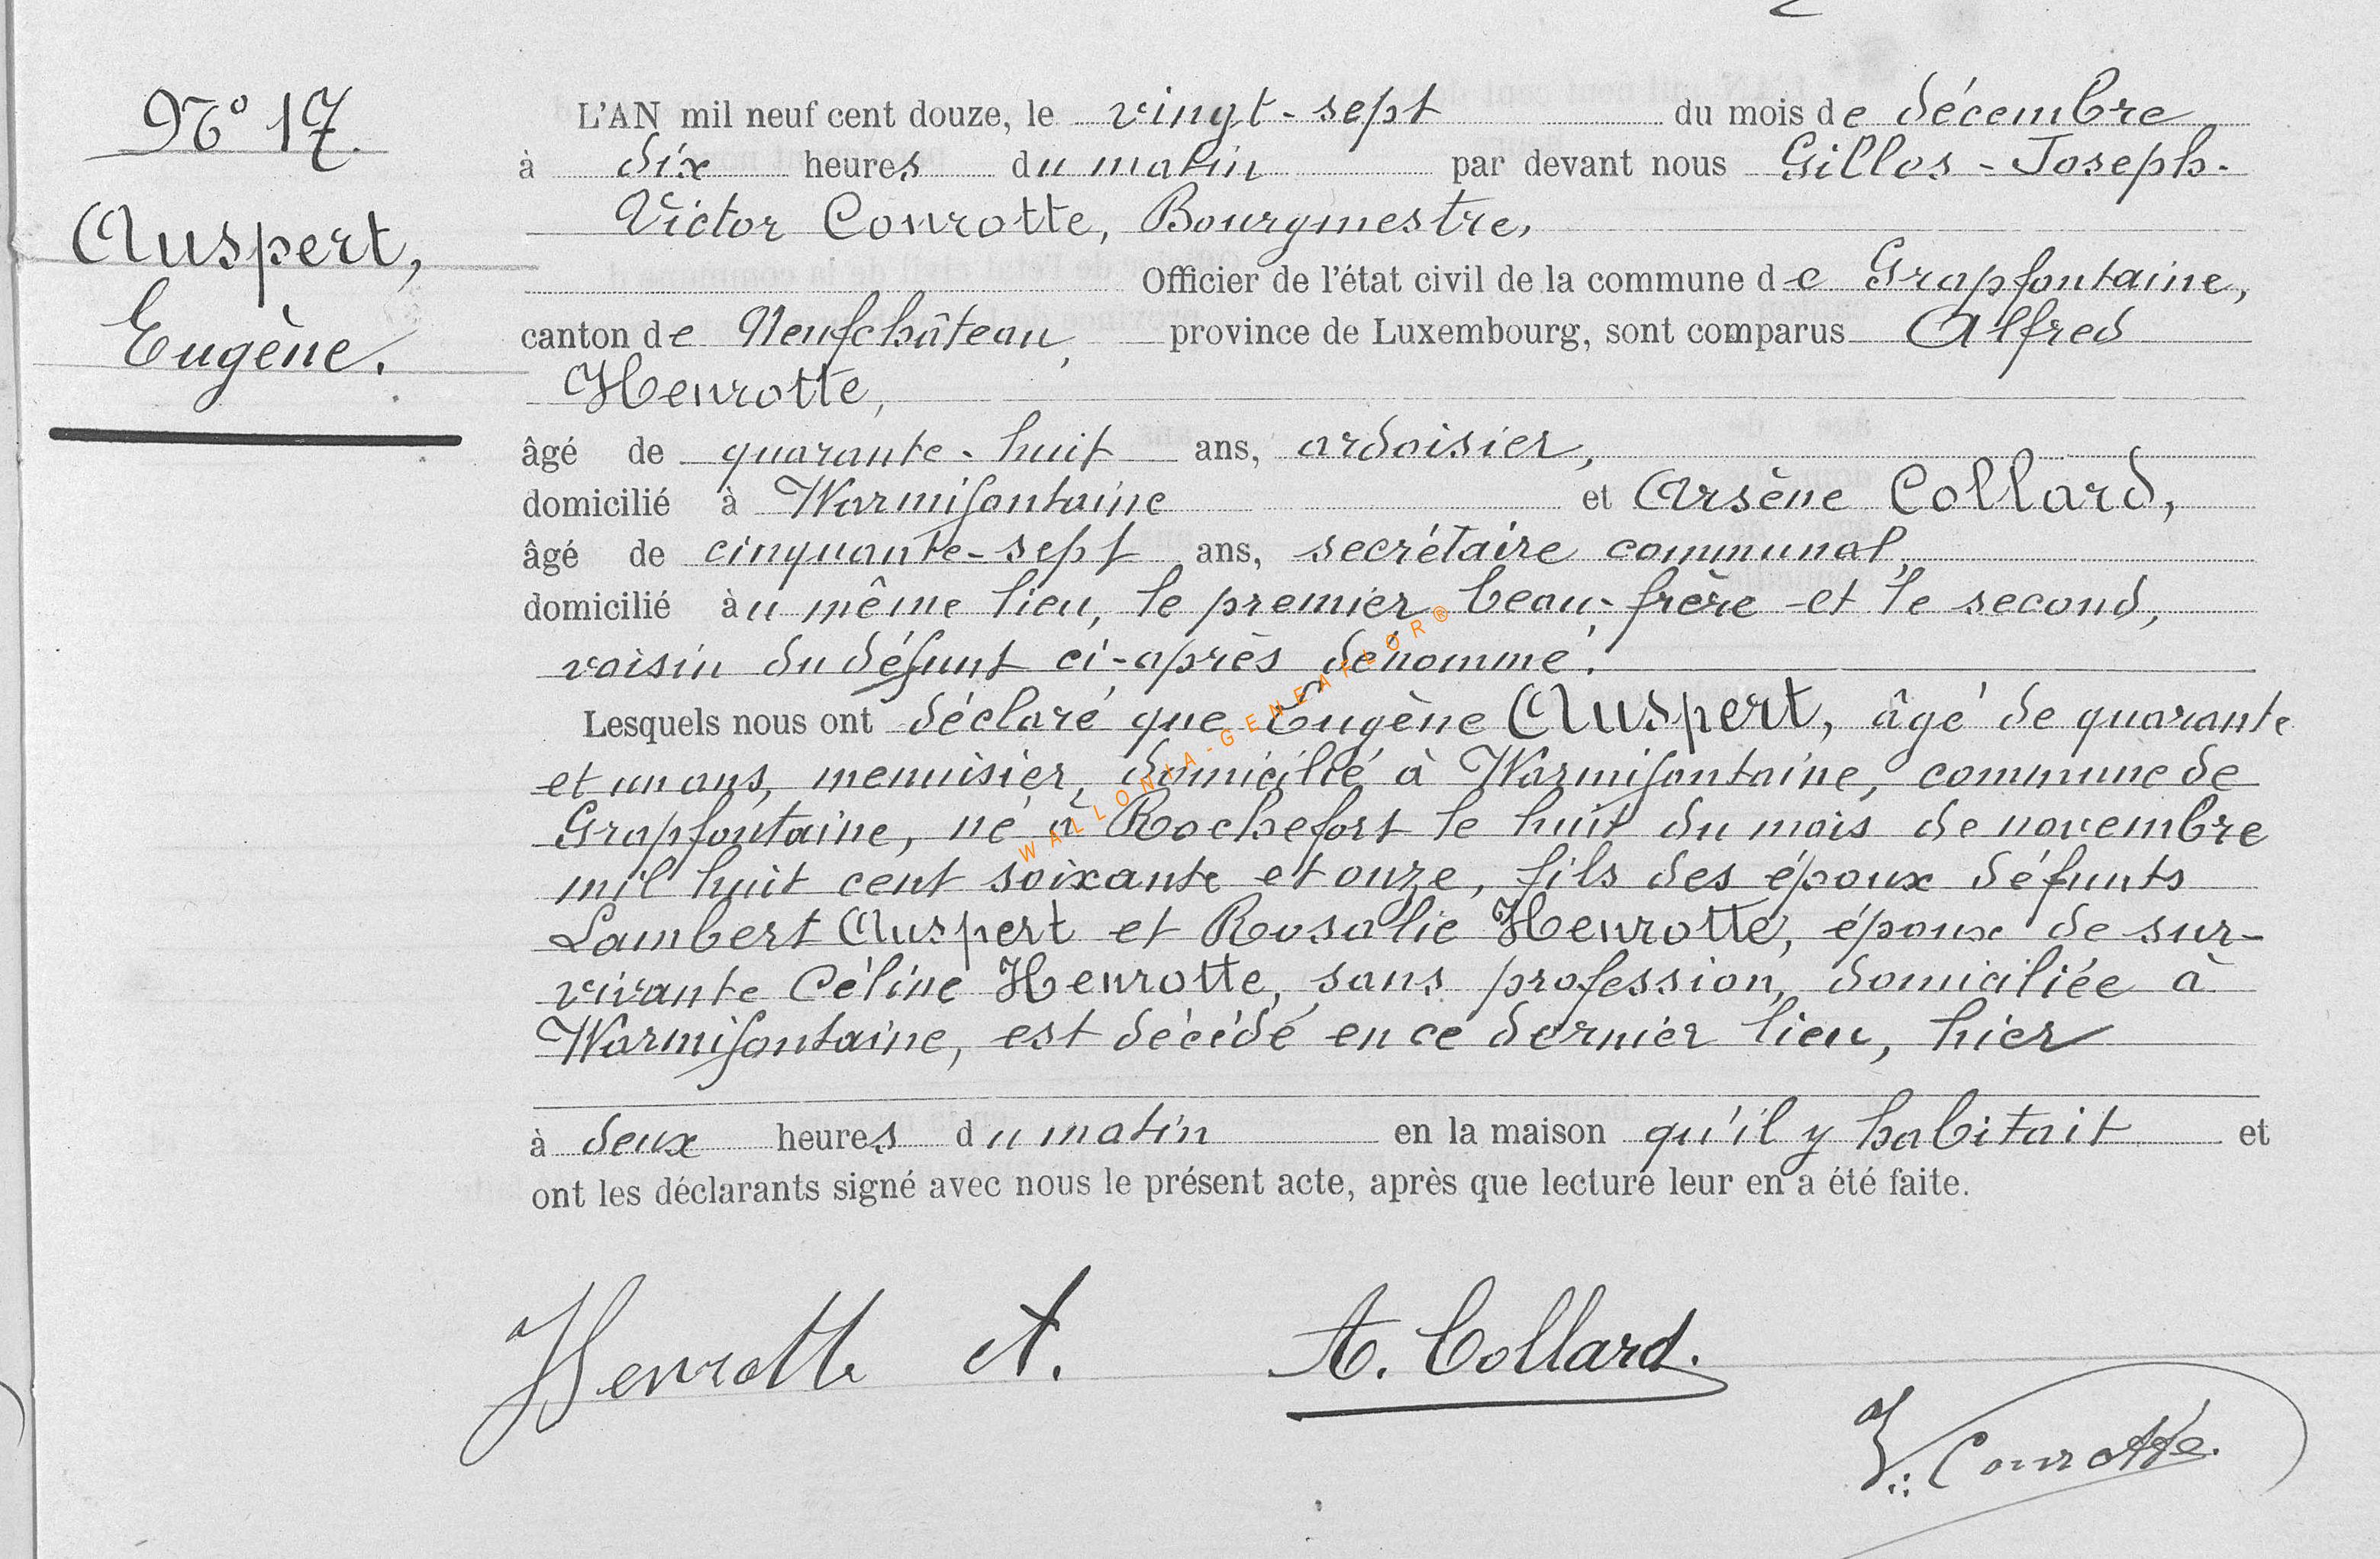 N° 17.
Auspert,
Eugène.
L'AN mil neuf cent douze, le vingt-sept du mois de décembre
à dix heures du matin par devant nous Gilles-Joseph-
Victor Conrotte, Bourgmestre,
Officier de l'état civil de la commune de Grapfontaine,
canton de Neufchâteau, province de Luxembourg, sont comparus Alfred
Henrotte,
âgé de quarante-huit ans, ardoisier,
domicilié à Warmifontaine et Arsène Collard,
âgé de cinquante-sept ans, secrétaire communal,
domicilié au même lieu, le premier beau-frère et le second,
voisin du défunt ci-après dénommé.
Lesquels nous ont déclaré que Eugène Auspert, âgé de quarante
et un ans, menuisier, domicilié à Warmifontaine, commune de
Grapfontaine, né à Rochefort le huit du mois de novembre
mil huit cent soixante et onze, fils des époux défunts
Lambert Auspert et Rosalie Henrotte, époux de sur-
vivante Céline Henrotte, sans profession, domiciliée à
Warmifontaine, est décédé en ce dernier lieu, hier
à deux heures du matin en la maison qu'il y habitait et
ont les déclarants signé avec nous le présent acte, après que lecture leur en a été faite.
Henrotte A. A. Collard.
V. Conrotte.
WALLONIA-GENEAFLOR®